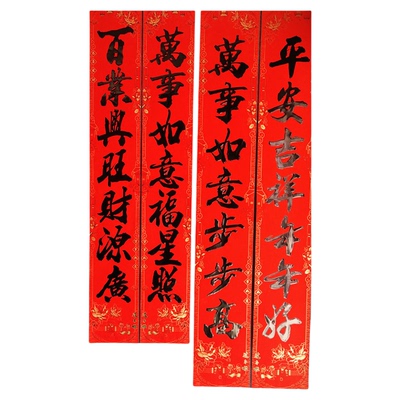 平安吉祥年年好
萬事如意步步高
萬事如意福星照
百業興旺財源廣